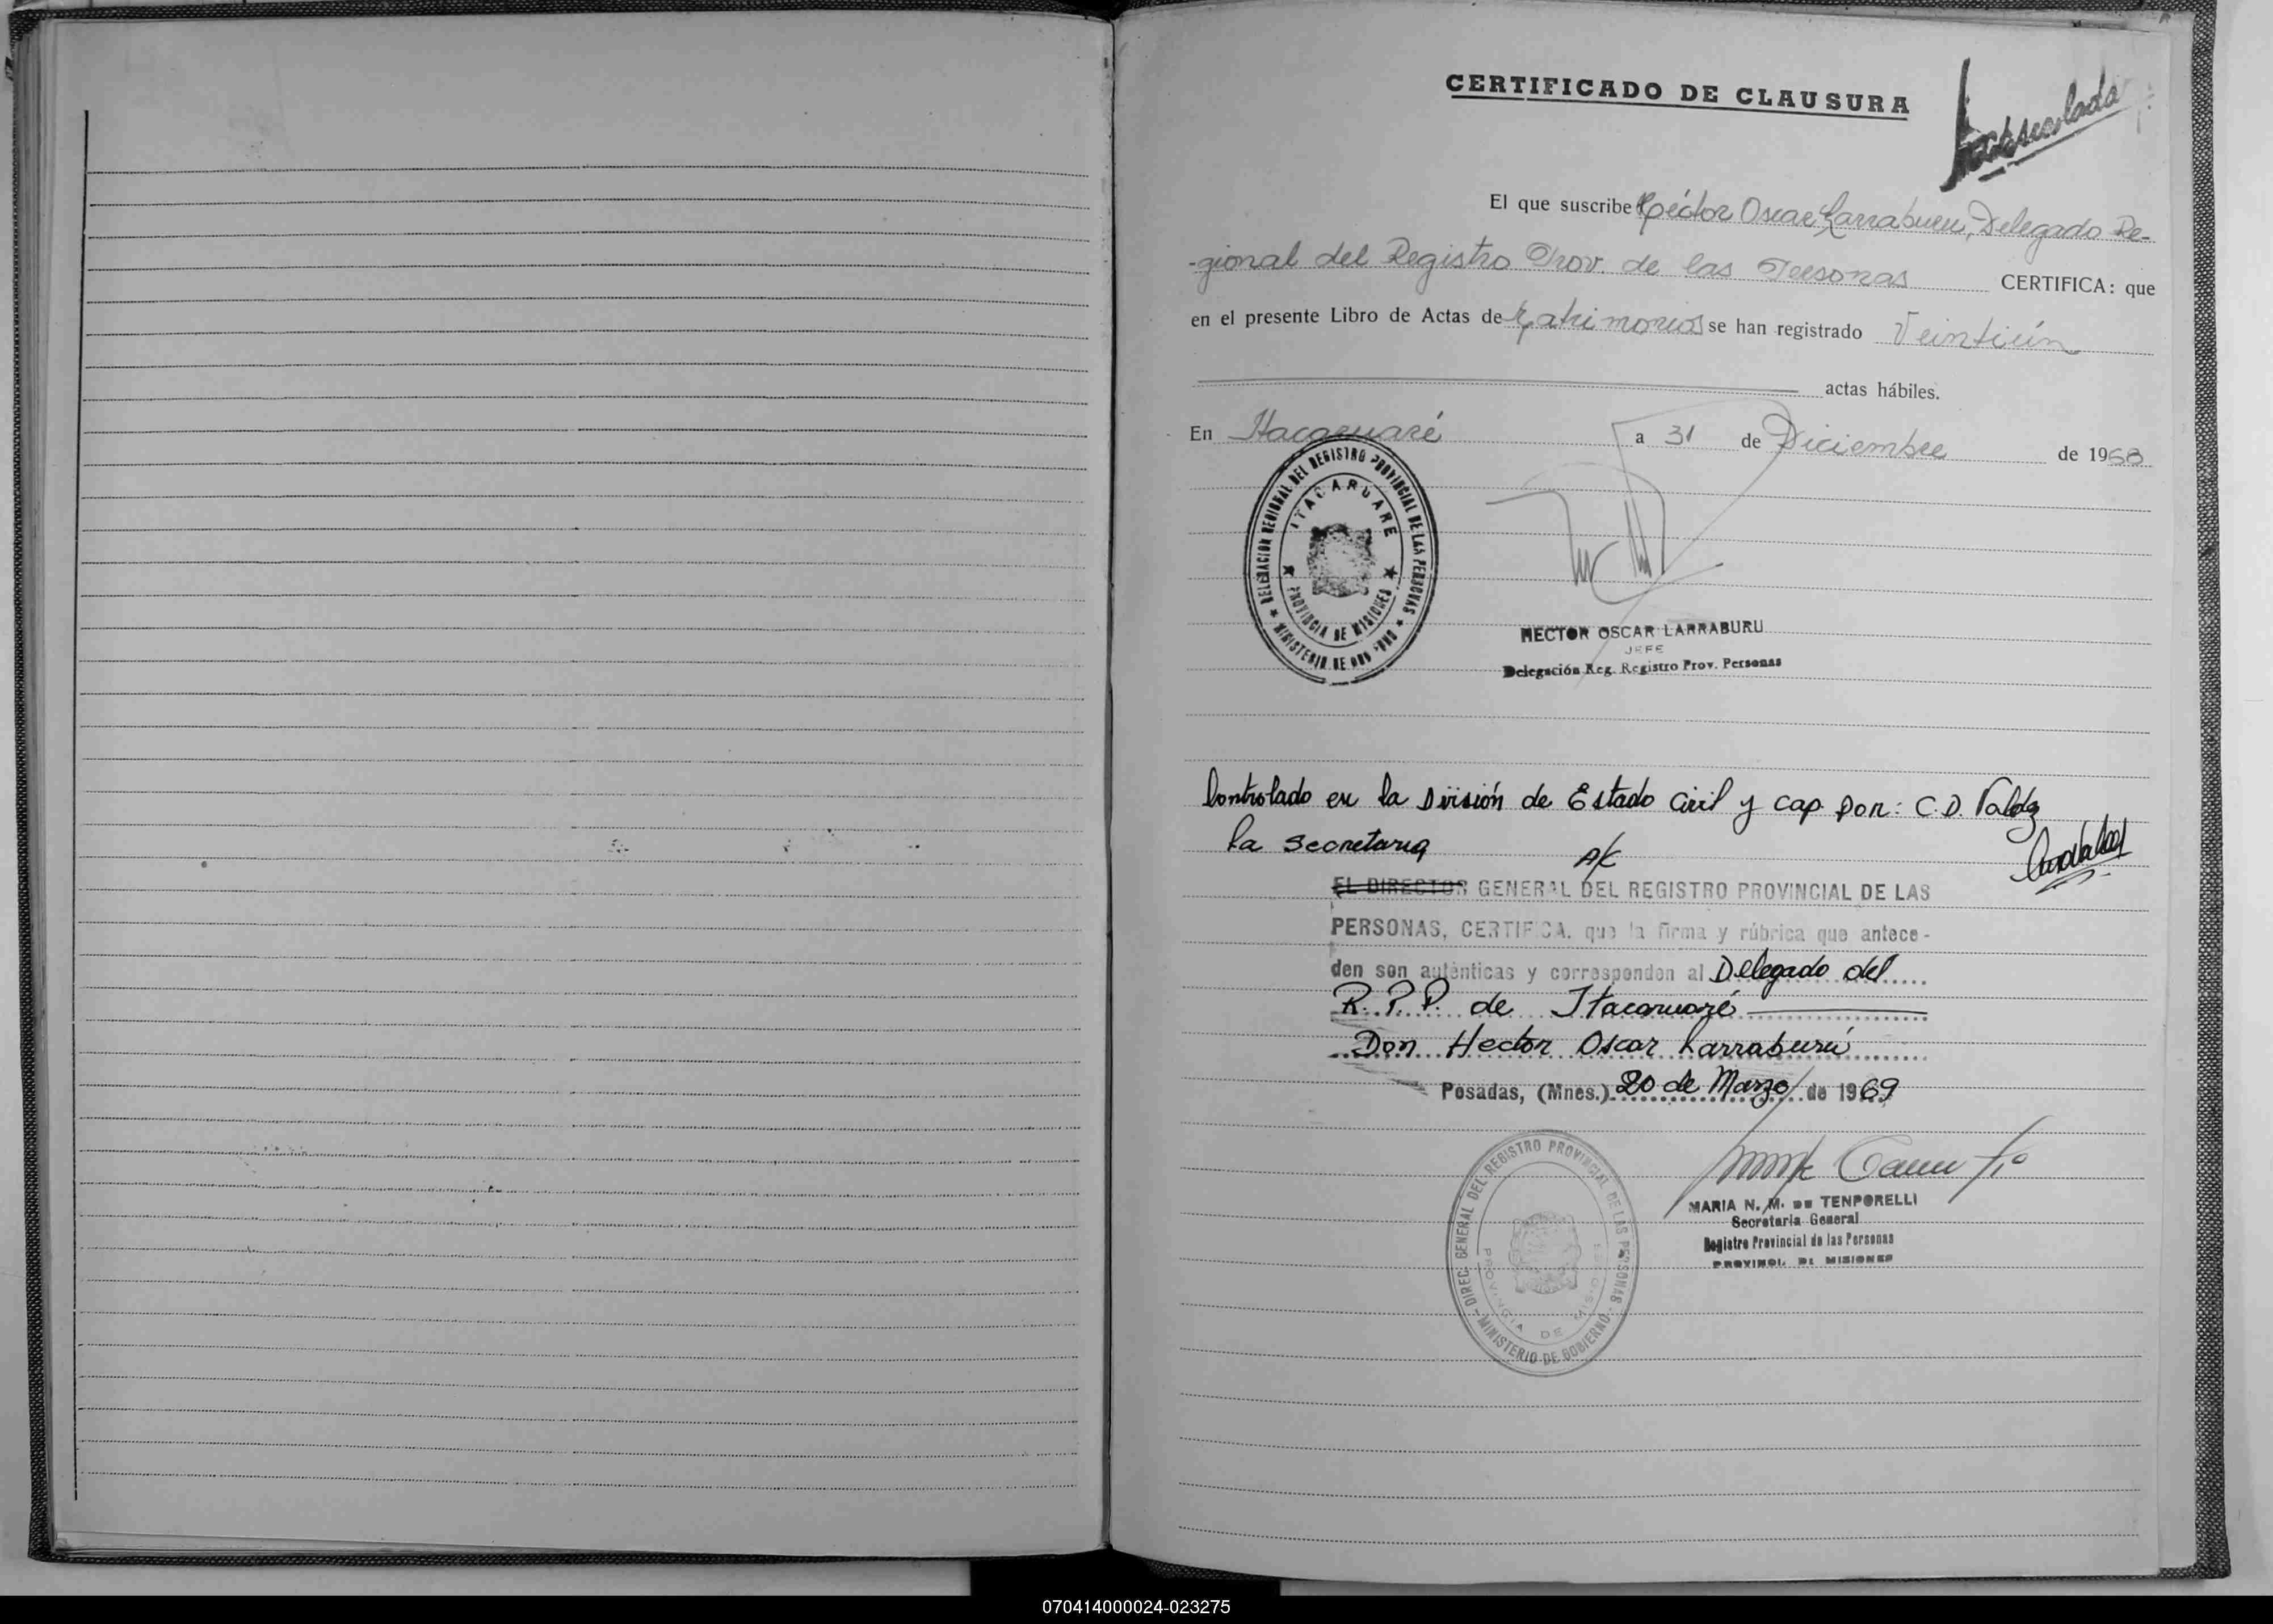 CERTIFICADO DE CLAUSURA
El que suscribe Héctor Oscar Larraburu, Delegado Re-
-gional del Registro Prov. de las Personas CERTIFICA: que
en el presente Libro de Actas de Matrimonios se han registrado Veintiún
actas hábiles.
En Itacaruaré a 31 de Diciembre de 1968
DELEGACION REGIONAL DEL REGISTRO PROVINCIAL DE LAS PERSONAS
ITACARUARE
PROVINCIA DE MISIONES
MINISTERIO DE GOBIERNO
HECTOR OSCAR LARRABURU
JEFE
Delegación Reg. Registro Prov. Personas
Controlado en la División de Estado Civil y Cap. Por: C.D. Valdez
La Secretaria
EL DIRECTOR GENERAL DEL REGISTRO PROVINCIAL DE LAS
PERSONAS, CERTIFICA. que la firma y rúbrica que antece-
den son auténticas y corresponden al Delegado del
R.P.P. de Itacaruaré
Don Hector Oscar Larraburú
Posadas, (Mnes.) 20 de Marzo de 1969
DIREC. GENERAL DEL REGISTRO PROVINCIAL DE LAS PERSONAS
PROVINCIA DE MISIONES
MINISTERIO DE GOBIERNO
MARIA N. M. DE TENPORELLI
Secretaria General
Registro Provincial de las Personas
PROVINCI. DE MISIONES
070414000024-023275